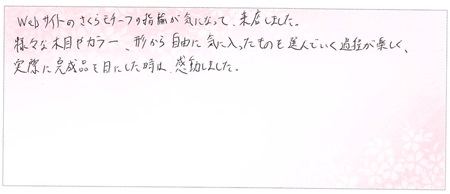 Webサイトのさくらモチーフの指輪が気になって、来店しました。
様々な木目やカラー、形から自由に気に入ったものを選んでいく過程が楽しく、
実際に完成品を目にした時は、感動しました。